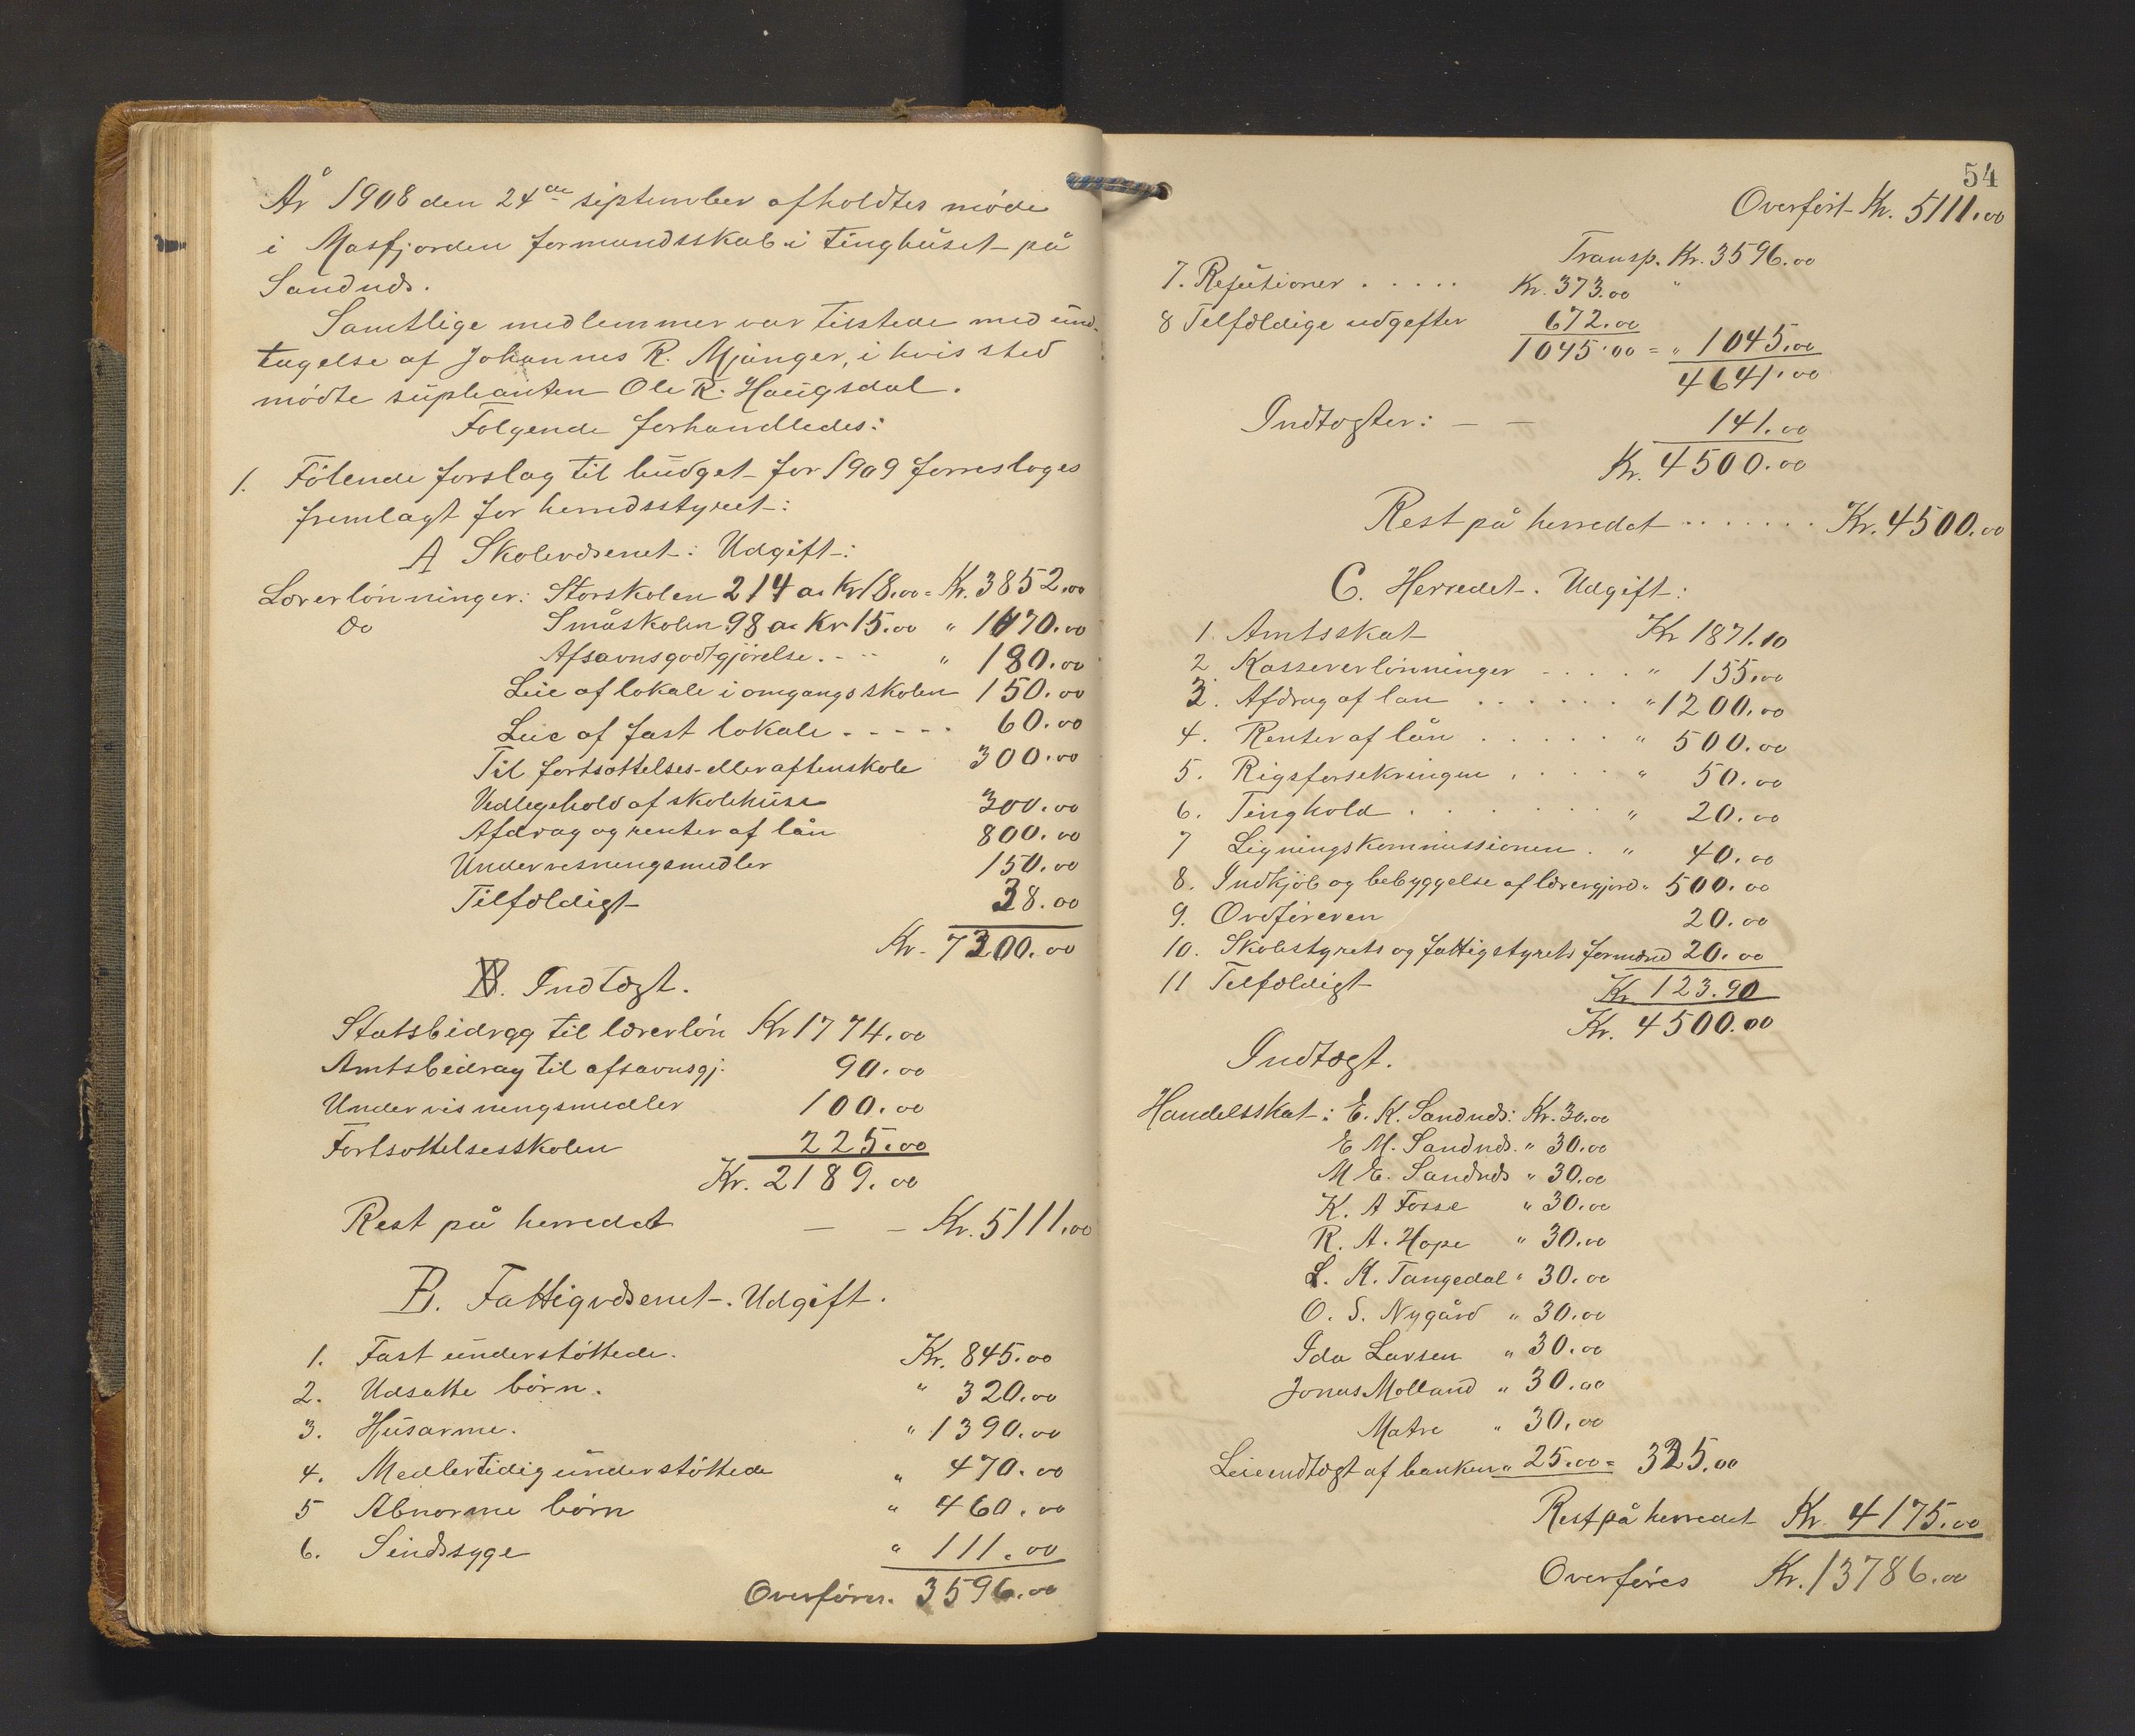 År 1908 den 24de september afholdtes møde
i Masfjorden formandsskab i tinghuset på
Sandnæs.
Samtlige medlemmer var tilstede med und-
tagelse af Johannes R. Mjanger, i hvis sted
mødte suplianten Ole R. Haugsdal.
Følgende forhandledes:
1. Følende forslag til budget for 1909 forresloges
fremlagt for herredsstyret:
A Skolevæsenet: Udgift:
Lærerlønninger: Storskolen 214 a Kr 18.00 = Kr. 3852.00
Do Småskolen 98 a Kr 15.00 " 1470.00
Afsavnsgodtgjørelse. - - " 180.00
Leie af lokale i omgangsskolen 150.00
Leie af fast lokale - - - - - 60.00
Til fortsættelses- eller aftenskole 300.00
Vedlegehold af skolehuse 300.00
Afdrag og renter af lån 800.00
Undervisningsmedler 150.00
Tilfældigt 38.00
Kr. 7300.00
B. Indtægt.
Statsbidrag til lærerløn Kr 1774.00
Amtsbidrag til afsavnsgj. 90.00
Undervisningsmedler 100.00
Fortsættelsesskolen 225.00
Kr. 2189.00
Rest på herredet — - Kr. 5111.00
B. Fattigvæsenet. Udgift.
1. Fast understøttede. Kr. 845.00
2. Udsatte børn. " 320.00
3. Husarme. " 1390.00
4. Medlertidig understøttede " 470.00
5 Abnorme børn " 460.00
6. Sindssyge " 111.00
Overføres. 3596.00
54
Overført Kr. 5111.00
Transp. Kr. 3596.00
7. Refutioner . . . . . Kr. 373.00 "
8 Tilfældige udgefter 672.00
1045.00 = " 1045.00
4641.00
Indtægter: — — 141.00
Kr. 4500.00
Rest på herredet . . . . . . . Kr. 4500.00
C. Herredet. Udgift:
1. Amtsskat Kr 1871.10
2 Kassererlønninger - . . . " 155.00
3. Afdrag af lan . . . . . . " 1200.00
4. Renter af lån . . . . . " 500.00
5. Rigsforsekringen . . . . " 50.00
6. Tinghold . . . . . . " 20.00
7 Ligningskommissionen . " 40.00
8. Indkjøb og bebyggelse af lærergjord " 500.00
9. Ordføreren 20.00
10. Skolestyrets og fattigstyrets formænd 20.00
11 Tilfældigt Kr 123.90
Kr. 4500.00
Indtægt.
Handelsskat: E. K. Sandnæs: Kr. 30.00
E M. Sandnæs. " 30.00
M E. Sandnæs " 30.00
K. A Fosse " 30.00
R. A. Hope " 30.00
L. K. Tangedal " 30.00
O. S. Nygård " 30.00
Ida Larsen " 30.00
Jonas Molland " 30.00
Matre " 30.00
Leieindtægt af banken " 25.00 = 325.00
Rest på herredet Kr. 4175.00
Overføres Kr. 13786.00